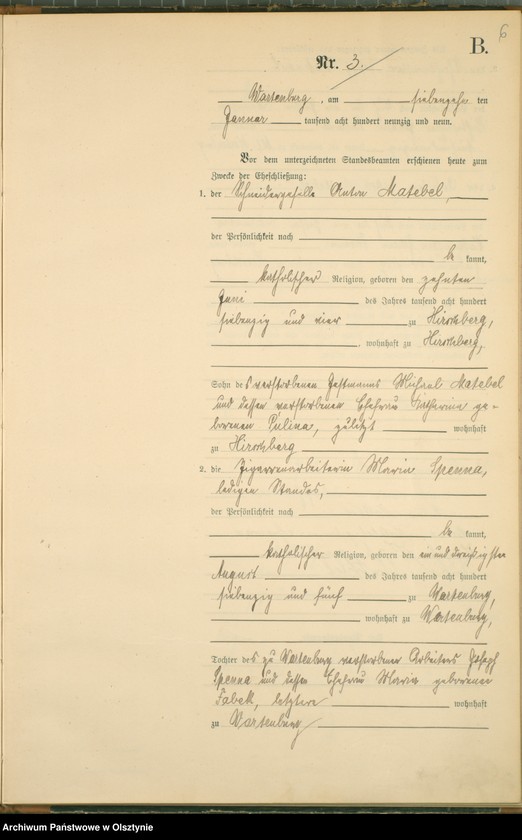 6
B.
Nr. 3.
Wartenburg, am siebenzehn ten
Januar tausend acht hundert neunzig und neun.
Vor dem unterzeichneten Standesbeamten erschienen heute zum
Zwecke der Eheschließung:
1. der Schneidergeselle Anton Matebel,
der Persönlichkeit nach
be kannt,
katholischer Religion, geboren den zehnten
Juni des Jahres tausend acht hundert
siebenzig und vier zu Hirschberg,
, wohnhaft zu Hirschberg,
Sohn des verstorbenen Instmanns Michael Matebel
und dessen verstorbenen Ehefrau Katharina ge-
borenen Pulina, zuletzt wohnhaft
zu Hirschberg
2. die Zigarrenarbeiterin Maria Spenna,
ledigen Standes,
der Persönlichkeit nach
be kannt,
katholischer Religion, geboren den ein und dreißigsten
August des Jahres tausend acht hundert
siebenzig und fünf zu Wartenburg,
wohnhaft zu Wartenburg,
Tochter des zu Wartenburg verstorbenen Arbeiters Joseph
Spenna und dessen Ehefrau Maria geborenen
Fabek, letztere wohnhaft
zu Wartenburg
Archiwum Państwowe w Olsztynie